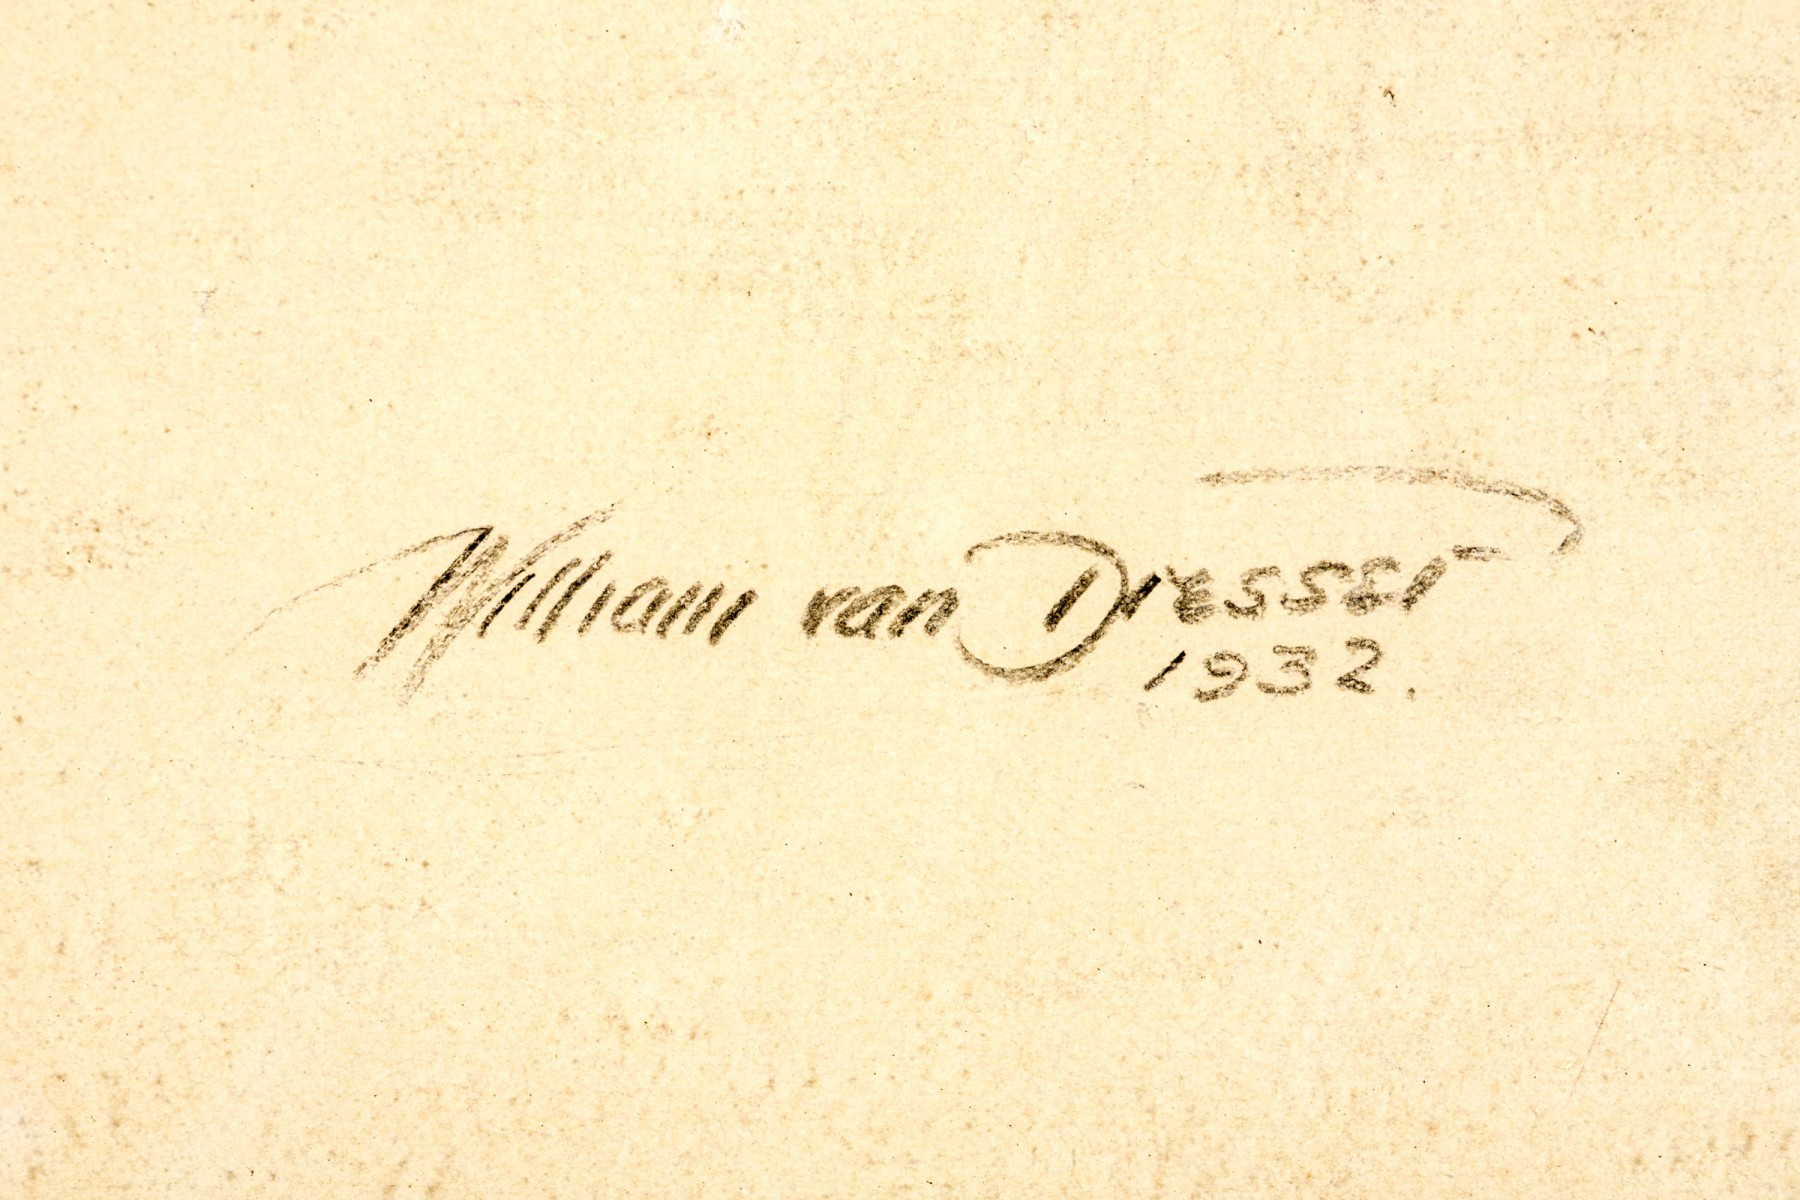 William van Dresser
1932.